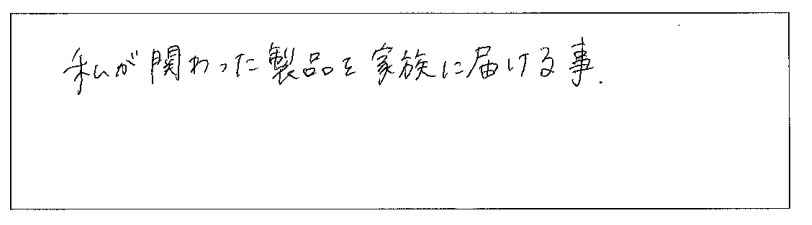 私が関わった製品を家族に届ける事.